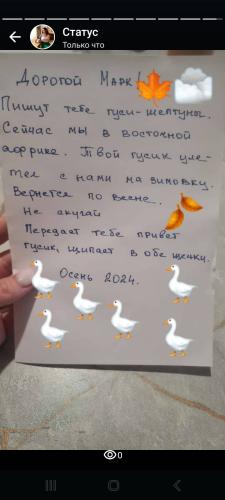 Статус
Только что
Дорогой Марк!
Пишут тебе гуси-шептуны.
Сейчас мы в восточной
африке. Твой гусик уле-
тел с нами на зимовку.
Вернется по весне.
Не скучай
Передает тебе привет
гусик, щипает в обе щечки.
Осень 2024.
0